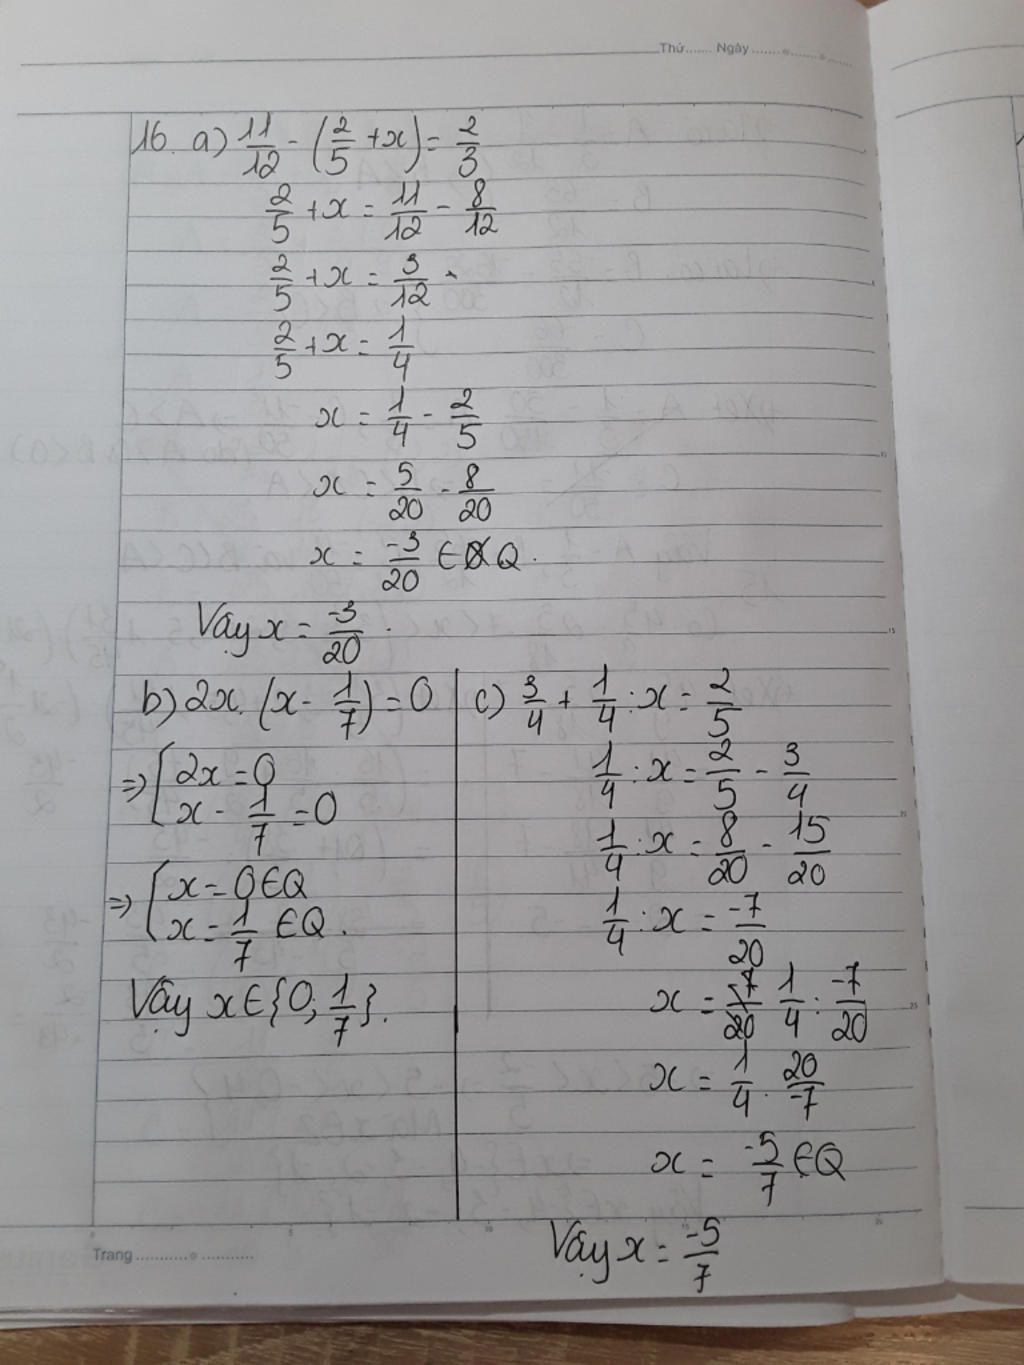 Thứ....... Ngày .......
16. a) 11/12 - (2/5 + x) = 2/3
2/5 + x = 11/12 - 8/12
2/5 + x = 3/12
2/5 + x = 1/4
x = 1/4 - 2/5
x = 5/20 - 8/20
x = -3/20 ∈ Q.
Vậy x = -3/20.
b) 2x. (x - 1/7) = 0
⇒ [ 2x = 0
x - 1/7 = 0
⇒ [ x = 0 ∈ Q
x = 1/7 ∈ Q.
Vậy x ∈ {0; 1/7}.
c) 3/4 + 1/4 : x = 2/5
1/4 : x = 2/5 - 3/4
1/4 : x = 8/20 - 15/20
1/4 : x = -7/20
x = -7/20 1/4 : -7/20
x = 1/4 . 20/-7
x = -5/7 ∈ Q
Vậy x = -5/7
Trang